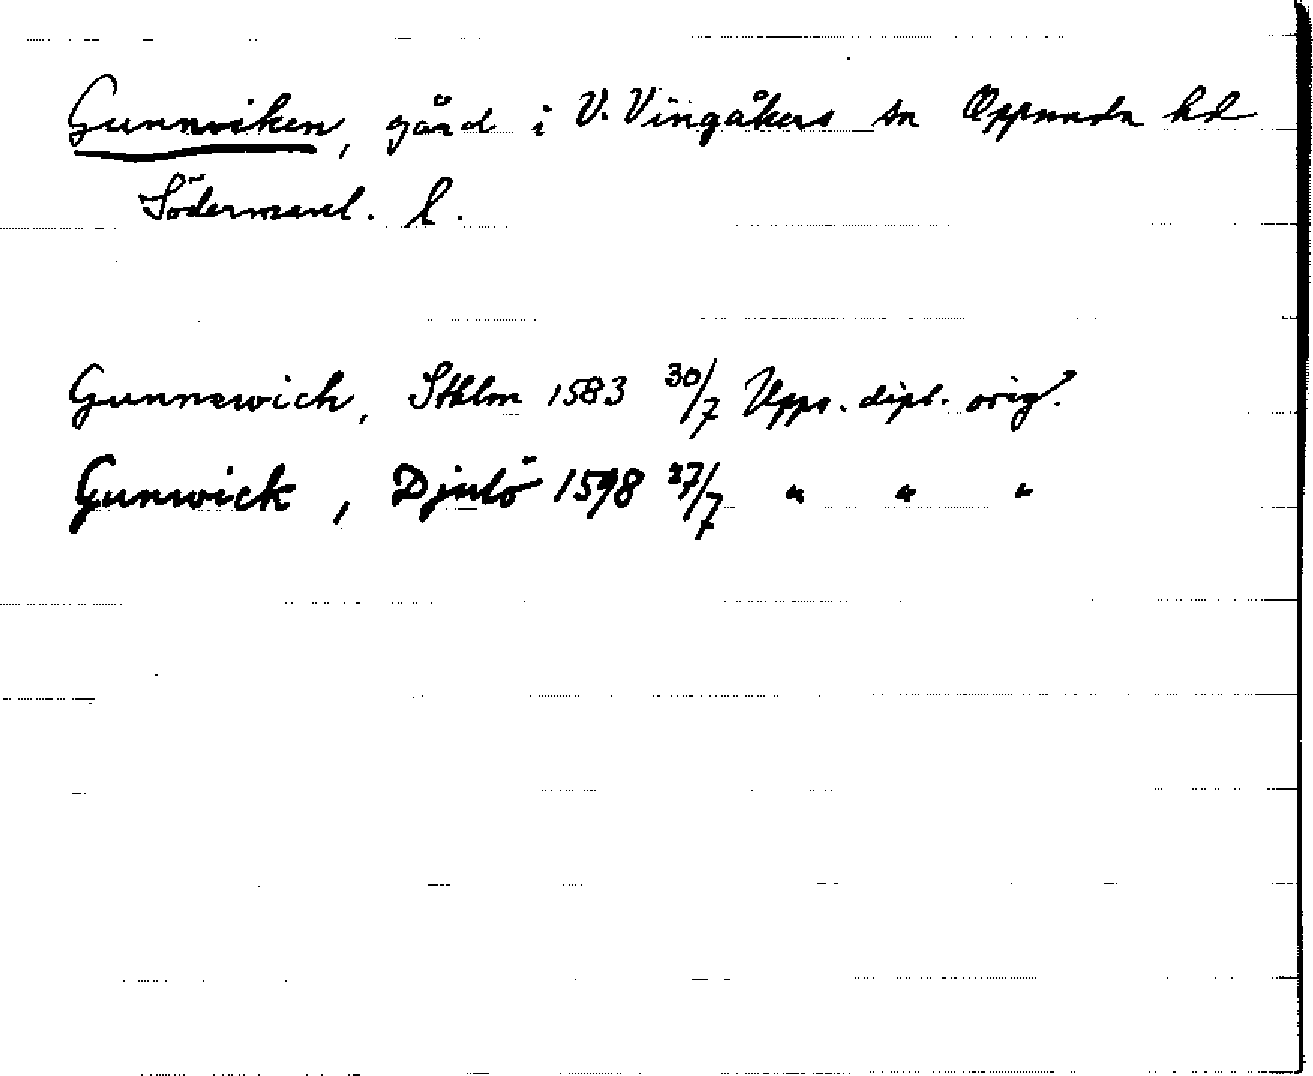 Gunnviken, gård i V. Vingåkers sn Oppunda hd
Södermanl. l.
Gunnewich, Sthlm 1583 30/7 Upps. dipl. orig.
Gunwick, Djulö 1598 27/7 " " "